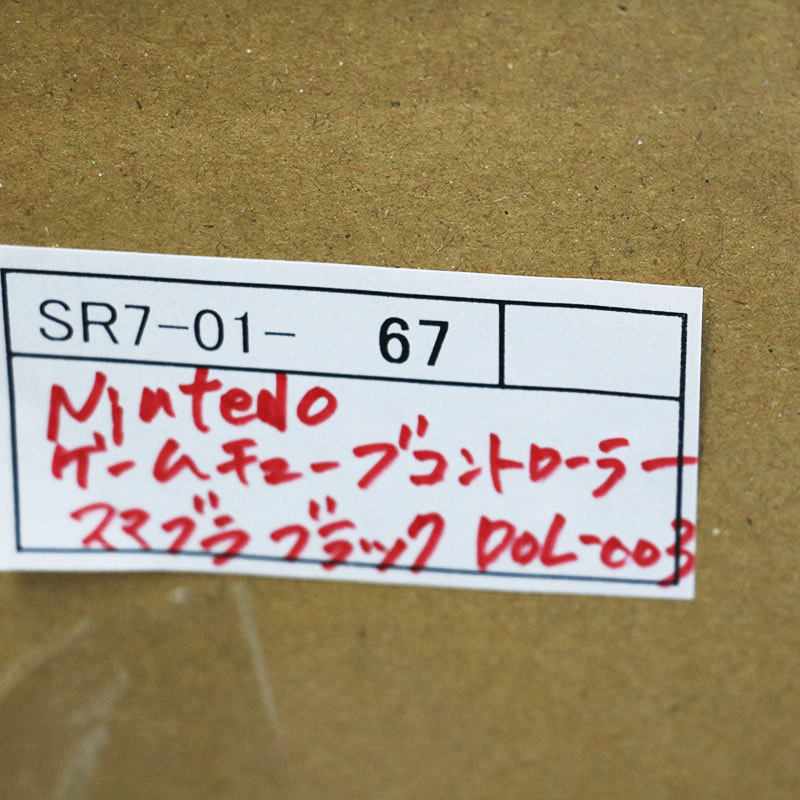 SR7-01- 67
Nintedo
ゲームキューブコントローラー
スマブラブラック DOL-003